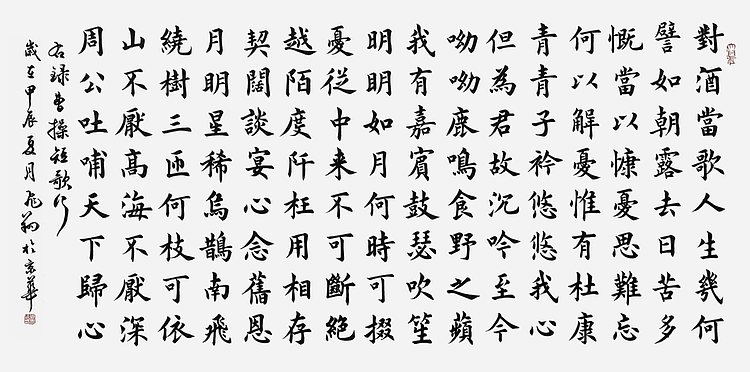 對酒當歌人生幾何
譬如朝露去日苦多
慨當以慷憂思難忘
何以解憂惟有杜康
青青子衿悠悠我心
但為君故沉吟至今
呦呦鹿鳴食野之蘋
我有嘉賓鼓瑟吹笙
明明如月何時可掇
憂従中来不可斷絕
越陌度阡枉用相存
契闊談宴心念舊恩
月明星稀烏鵲南飛
繞樹三匝何枝可依
山不厭高海不厭深
周公吐哺天下歸心
右録曹操短歌行
歲在甲辰夏月於京華